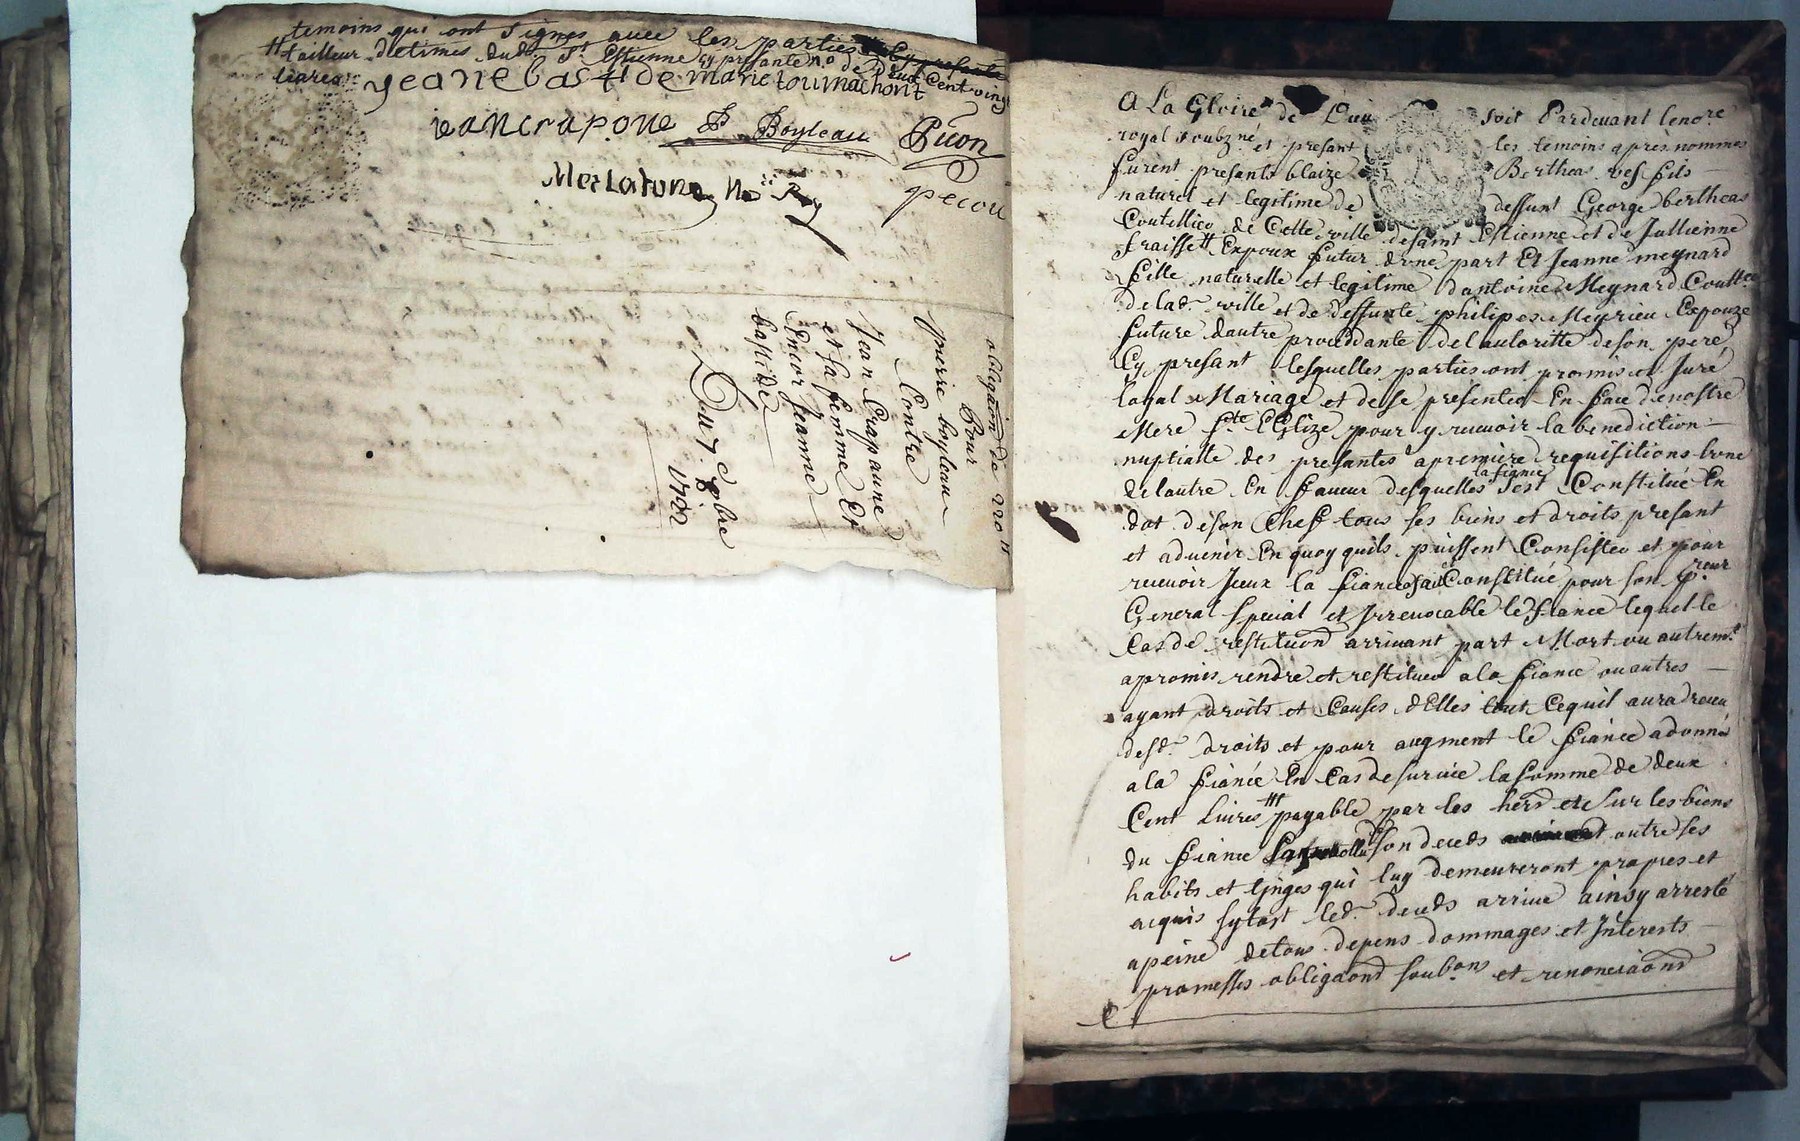 temoins qui ont signes avec les parties Cy presents
tailleur dlimes dudt St Estienne cy presante no de deux Cent vingt
livres
jeane bastide marie tournachont
ieancrapone P Boyleau Picon
Merlaton Nre Ry pecou
obligaon de 220 lt
Pour
pierre boyleau
Contre
Jean Crapaune
et sa femme Et
Encor Jeanne
bastide
Du 7e xbre
1702
A La Gloire de Dieu soit Pardevant le nore
royal soubzné et presant les temoins apres nommes
furent presants blaize Bertheas ves fils
naturel et legitime de deffunt George bertheas
Coutellier de Cette ville de saint Estienne et de Jullienne
fraisse Expoux futur dune part Et Jeanne meynard
fille naturelle et legitime dantoine Meynard Coutter
de lad. ville et de deffunte philipes Meyrieu Expouze
future dautre proceddante de lautoritte de son pere
Cy presant lesquelles parties ont promis et Juré
loyal Mariage et de se presenter En face de nostre
Mere Ste Eglize pour y recevoir la benediction
nuptialle des presantes a premiere requisitions lune
de lautre En faveur desquelles la fiance sest Constitué En
dot de son Chef tous ses biens et droits presant
et advenir En quoy quils puissent Consister et pour
recevoir Jceux la fiance a fait Constitué pour son p.reur
General special et Jrrevocable le fiance lequel le
Cas de restitution arrivant part Mort ou autremt
a promis rendre et restituer a la fiance ou autres
ayant droits et Causes dElles tout Ce quil aura receu
desd. droits et pour augment le fiance a donné
a la fiancé En Cas de survie la somme de deux
Cent Livres payable par les hers et sur les biens
du fiance son deceds outre ses
habits et linges qui luy demeureront propres et
acquis sytost led. deceds arrivé ainsy arresté
a peine de tous depens dommages et Jnterests
promesses obligaons soub.ons et renonciaons